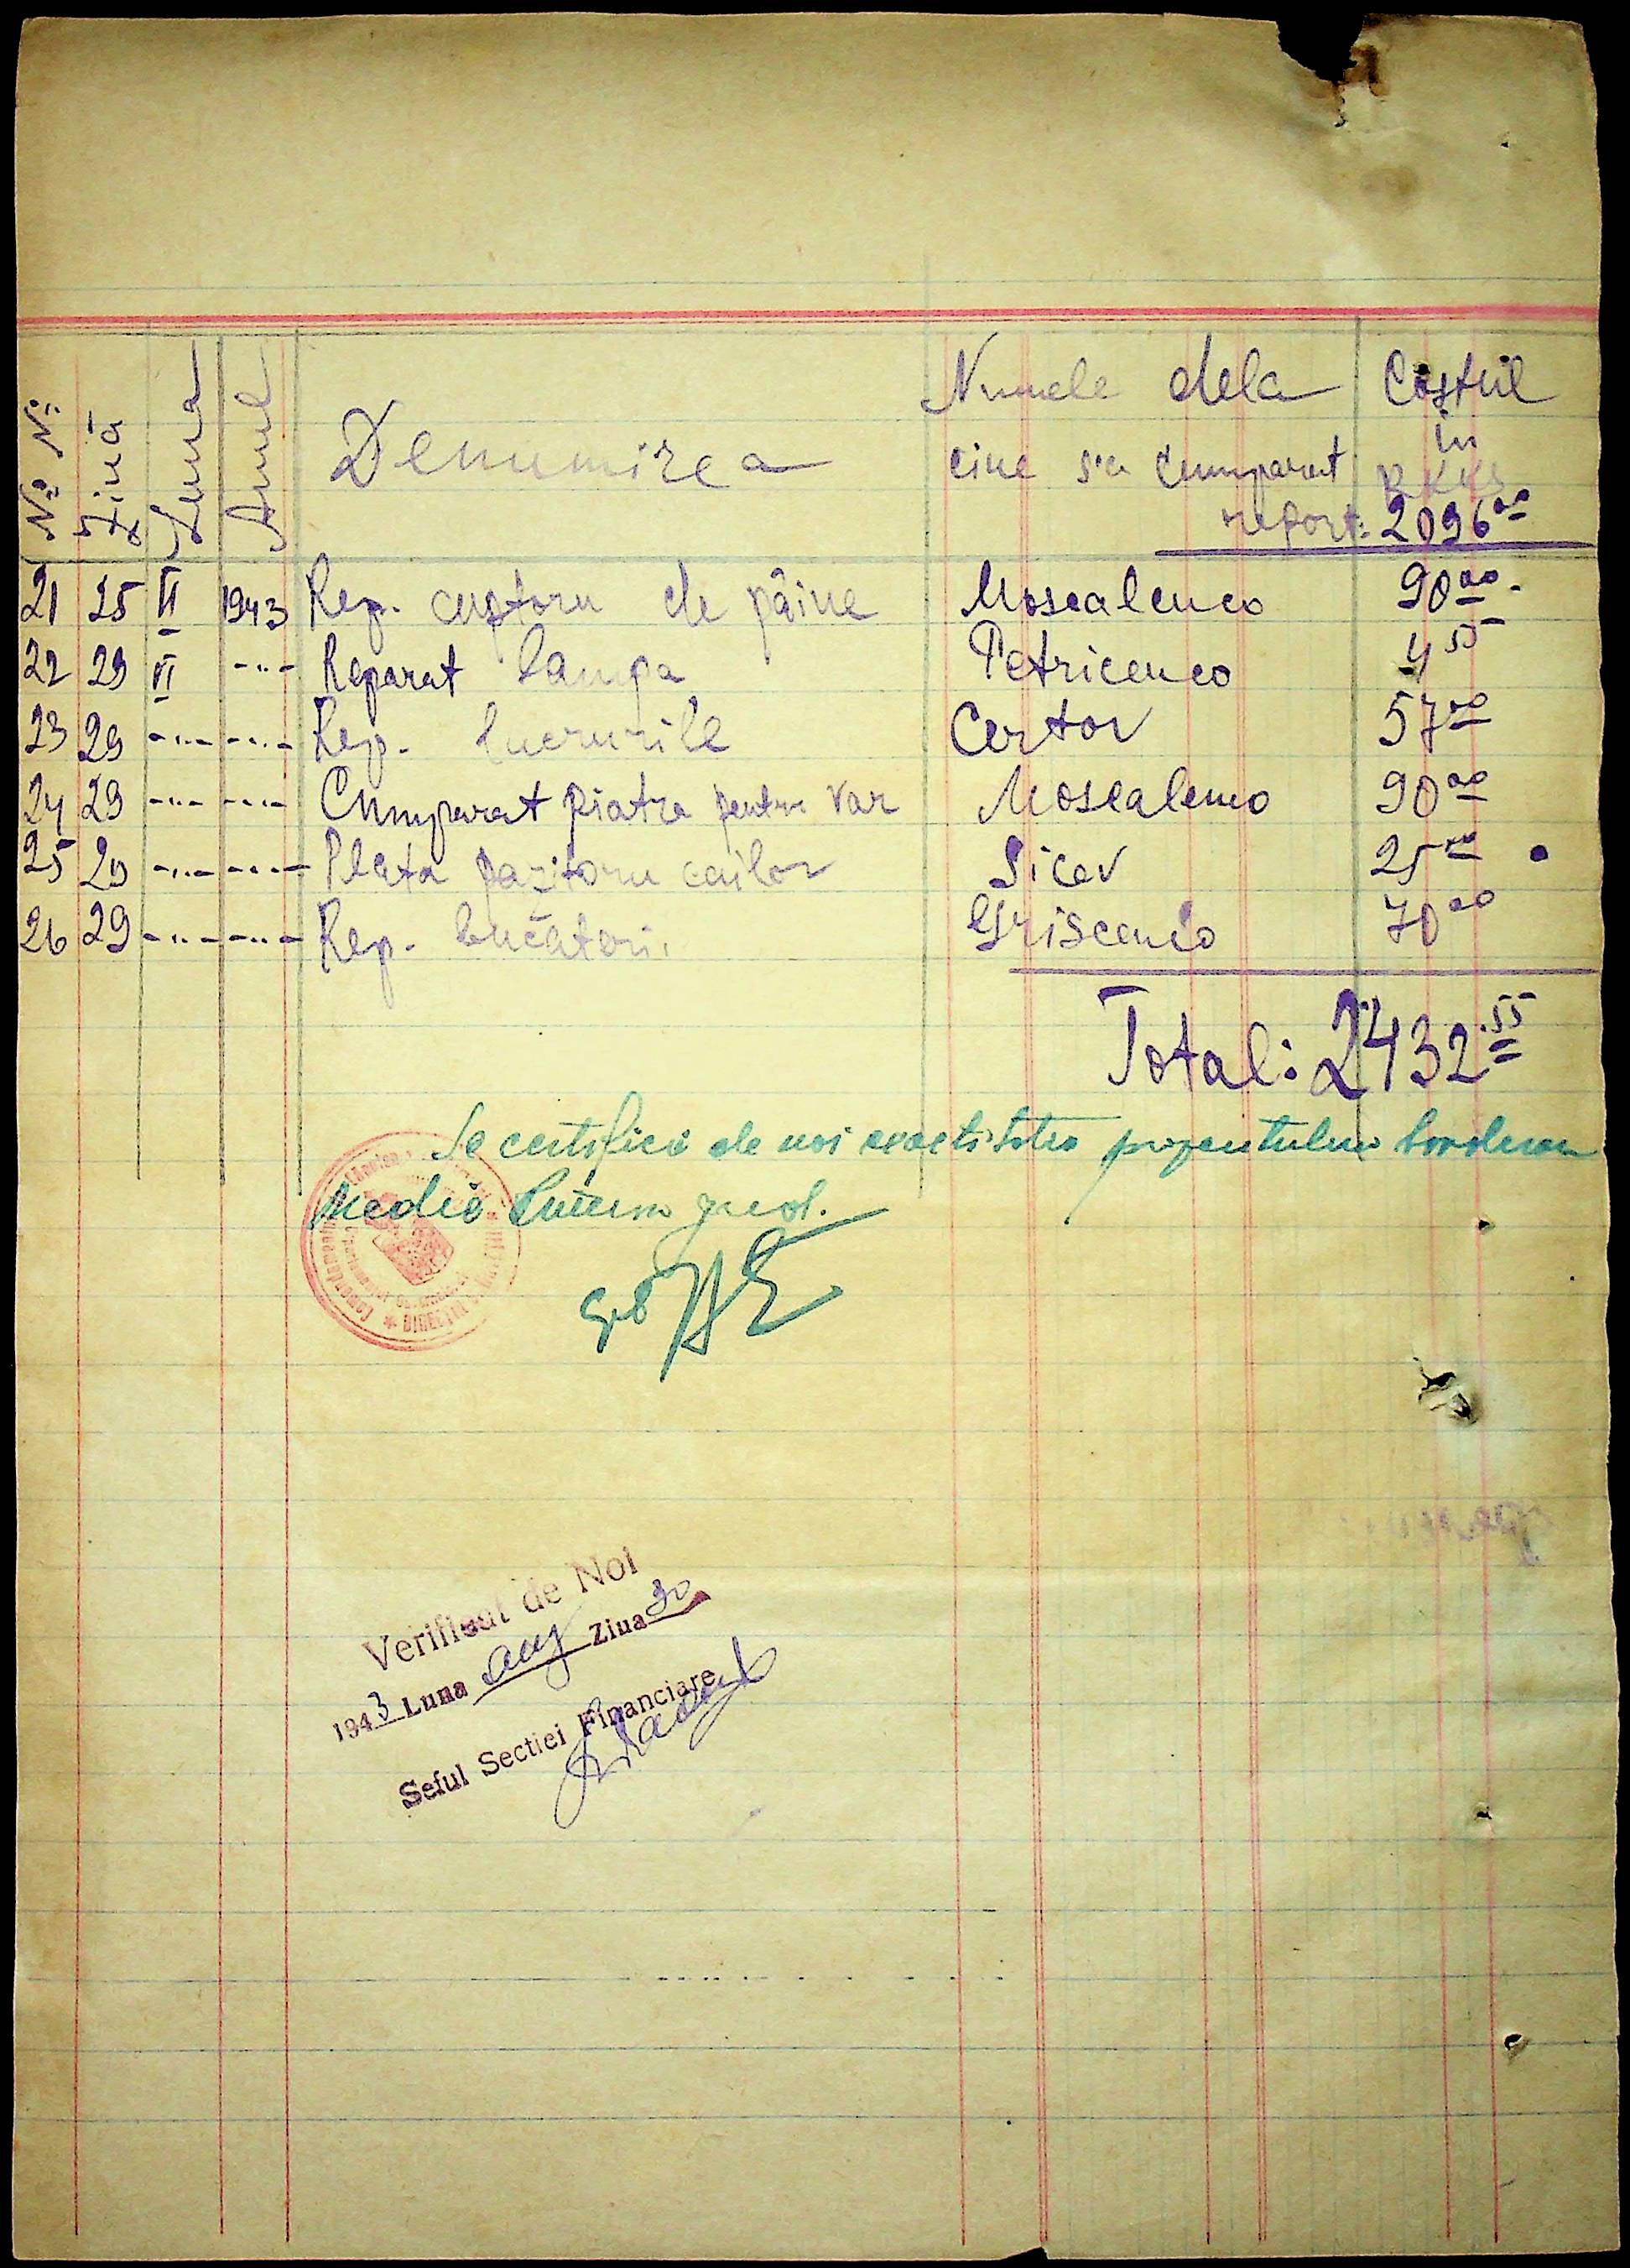 No No Ziua Luna Anul Denumirea Numele dela Costul
cine s'a cumparat in
RKKS
report: 2096 00
21 25 VI 1943 Rep. cuptoru de pâine Moscalenco 90 00
22 29 VI -"- Reparat lampa Petricenco 4 55
23 29 -"- -"- Rep. lucrurile Certov 57 00
24 29 -"- -"- Cumparat piatra pentru var Moscalenco 90 00
25 29 -"- -"- Plata pazitoru cailor Sicev 25 00
26 29 -"- -"- Rep. bucătari Griscenco 70 00
Total: 2432 55
Se certifică de noi exactitatea prezentului borderou
Medic
Verificat de Noi
1943 Luna aug Ziua 30
Seful Sectiei Financiare